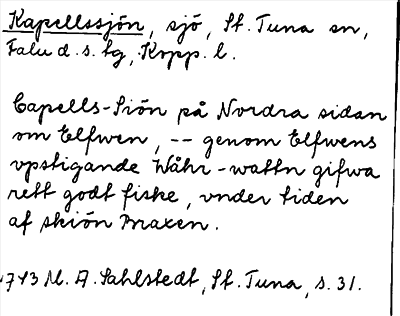 Kapellssjön, sjö, St. Tuna sn,
Falu d. s. lg, Kopp. l.
Capells-Siön på Nordra sidan
om Elfwen, -- genom Elfwens
vpstigande Wåhr-wattn gifwa
rett godt fiske, vnder tiden
af skiön Braxen.
1743 M. A. Sahlstedt, St. Tuna, s. 31.